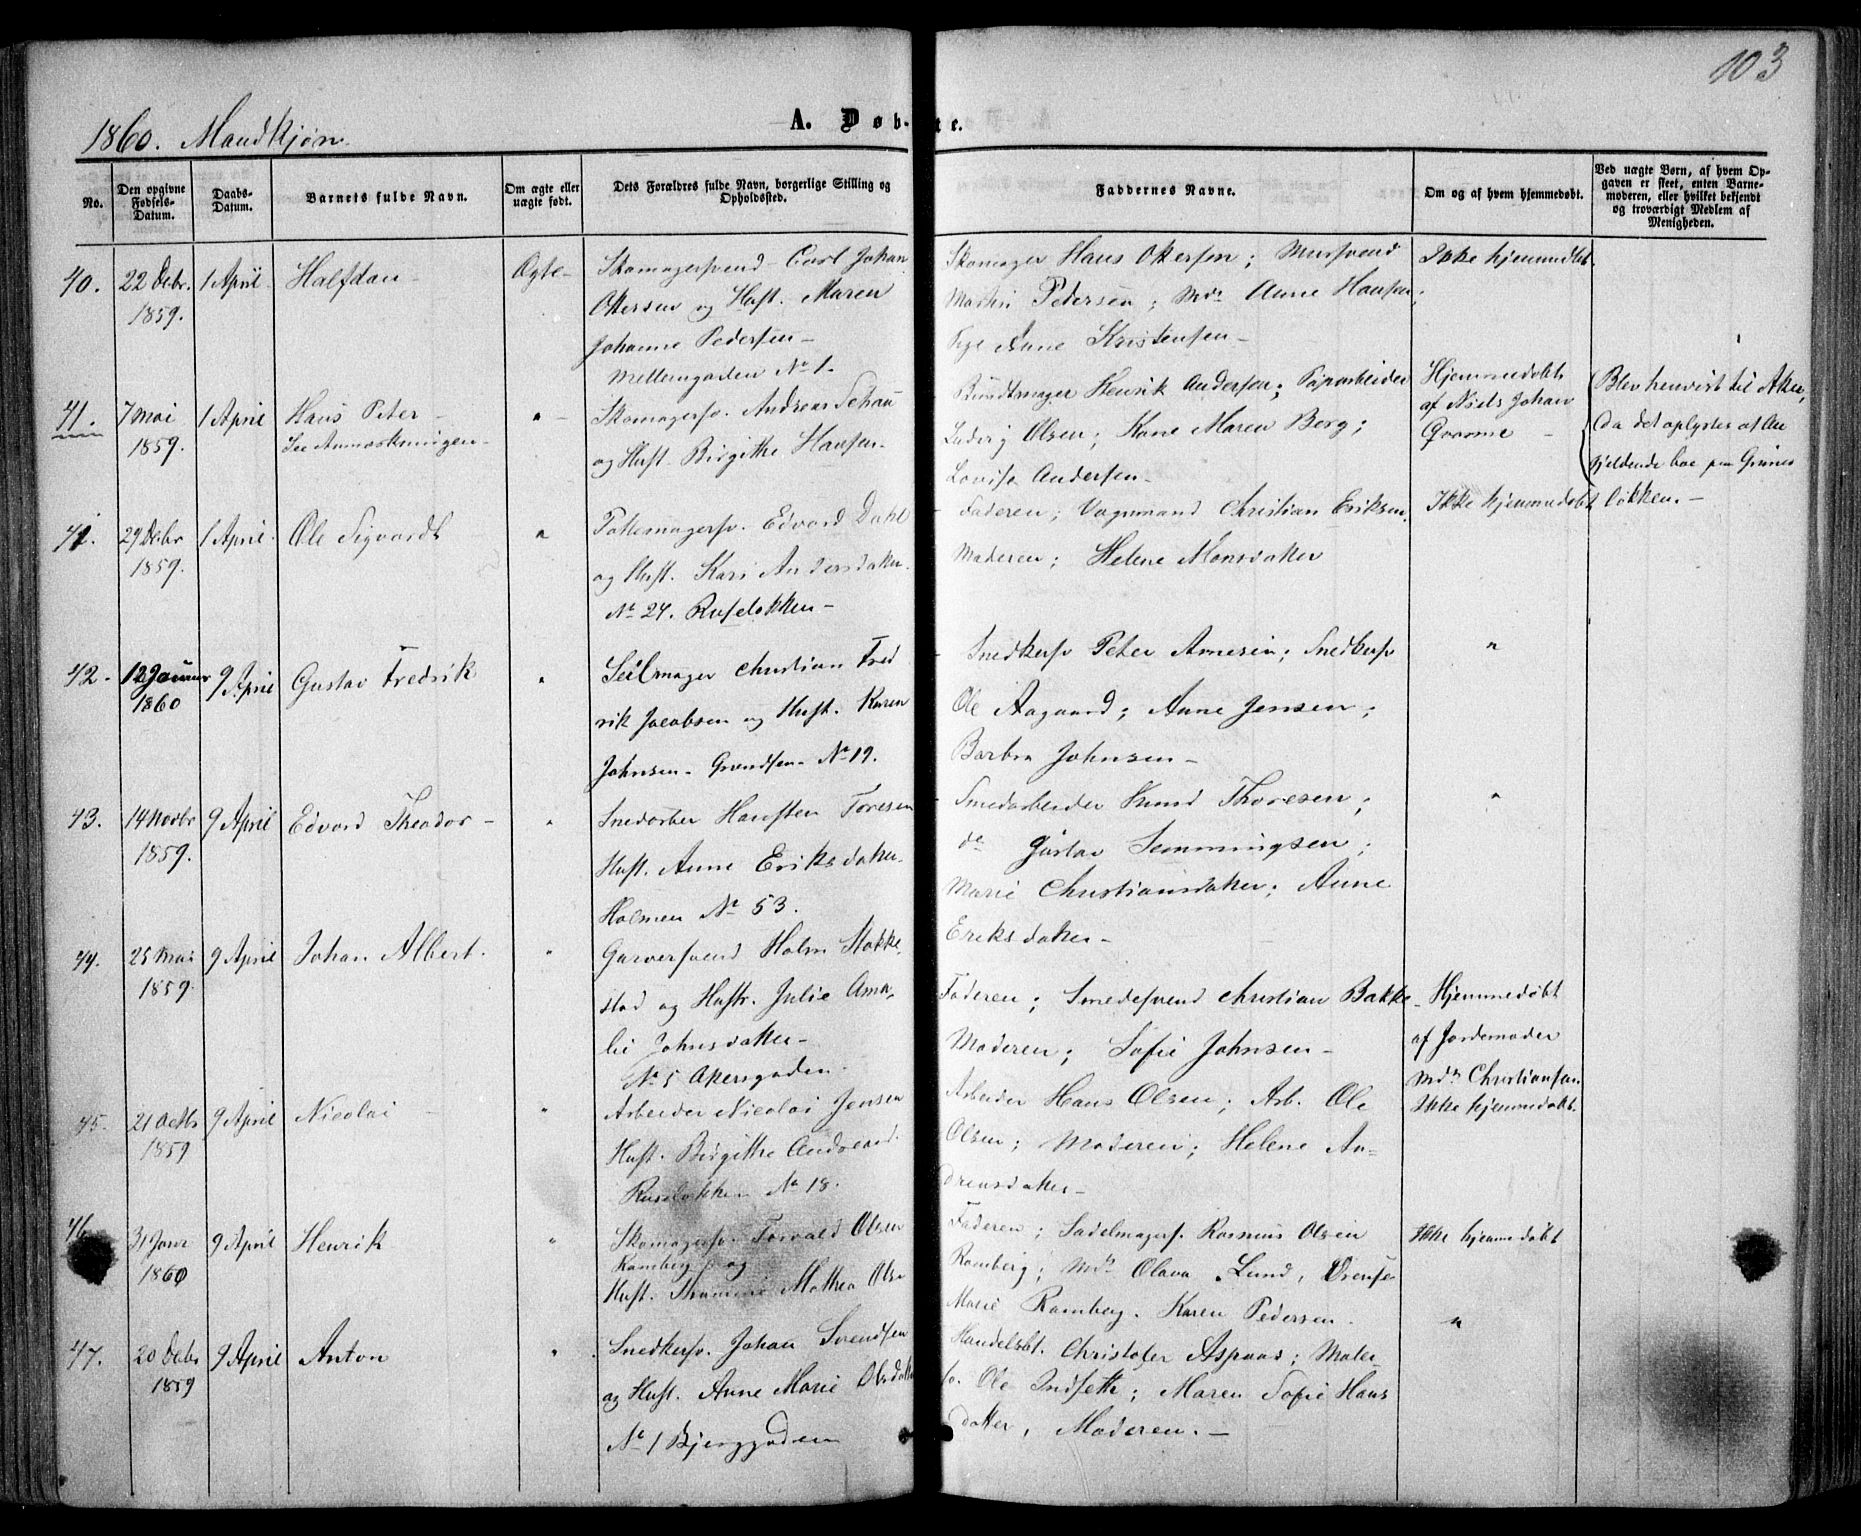 103
1860. Mandkjøn.
A. Døb-te.
No.
Den opgivne Fødsels-Datum.
Daabs-Datum.
Barnets fulde Navn.
Om ægte eller uægte født.
Dets Forældres fulde Navn, borgerlige Stilling og Opholdssted.
Faddernes Navne.
Om og af hvem hjemmedøbt.
Ved uægte Børn, af hvem Opgaven er skeet, enten Barnemoderen, eller hvilket bekjendt og troværdigt Medlem af Menigheden.
40. 22 Debr. 1 April Halfdan - Ægte- Skomagersvend Carl Johan
1859.
Ottersen og Hust. Maren
Johanne Pedersen-
Mellemgaden No 1.
Skomager Hans Ottersen; Mursvend
Martin Pedersen; Md. Anne Hansen;
Pige Anne Kristensen-
Ikke hjemmedøbt.
41. 7 Mai 1 April Hans Peter - " - Skomagersv. Andreas Schou
1859. See Anmærkningen-
og Hust. Birgitte Hansen-
Bundtmager Henrik Andersen;
Ludvig Olsen; Kone Maren Berg;
Lovise Andersen-
Hjemmedøbt
af Niels Johan
Blev henvist til Aker,
Da det oplystes at Ved
kjeldende boe paa Grüners
løkken.-
41. 29 Debr 1 April. Ole Sigvardt " Pottemagersv. Edvard Dahl
1859.
og Hust. Kari Andersdatter.
No 24. Ruseløkken-
Faderen; Vognmand Christian Eriksen,
Moderen; Helene Monsdatter
Ikke hjemmedøbt
42. 12 Januar 9 April Gustav Fredrik " Seilmager Christian Fred
1860
rik Jacobsen og Hust. Karen
Johnsen- Grændsen- No 19.
Snedkersv Peter Arnesen; Snedkersv
Ole Aagaard; Anne Jensen;
Barbra Johnsen-
"
43. 14 Novbr 9 April Edvard Theodor - " Snedarber Hansten Toresen
1859.
Hust. Anne Eriksdatter.
Holmen No 53.
Smedarbeider Knud Thoresen;
do Gustav Semmingsen;
Marie Christiansdatter; Anne
Eriksdatter-
"
44. 25 Mai 9 April Johan Albert. " Garversvend Holm Stokke
1859.
stad og Hustr. Julie Ama,
lie Johnsdatter-
No 5 Akersgaden.
Faderen; Smedesvend Christian Bakke-
Moderen; Sofie Johnsen-
Hjemmedøbt
af Jordemoder
Md. Christiansen.
45. 21 Octbr 9 April Nicolai - " Arbeider Nicolai Jensen
1859
Hust. Birgitte Andreasd.
Ruseløkken No 18.
Arbeider Hans Olsen; Arb. Ole
Olsen; Moderen; Helene An-
dreasdatter-
Ikke hjemmedøbt.
46. 31 Janr 9 April Henrik " Skomagersv. Torvald Olsen
1860
Ramberg og
Hust. Mathea Olsen
Faderen; Sadelmagersv. Rasmus Olsen
Ramberg; Md. Olava Lund,
Marie Ramberg. Karen Pedersen.
Ikke hjemmedøbt
47. 20 Debr 9 April Anton " Snedkersv. Johan Svendsen
1859
og Hust. Anne Marie Olsdatter
No 1 Bjerggaden
Handelsbt. Christofer Aspaas; Maler-
sv. Ole Indseth; Maren Sofie Hans
datter, Moderen.-
"